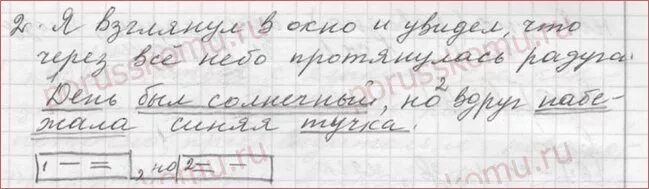 2. Я взглянул в окно и увидел, что
через всё небо протянулась радуга.
День был солнечный, но 2 вдруг набе-
жала синяя тучка.
1 — =, но 2 = —